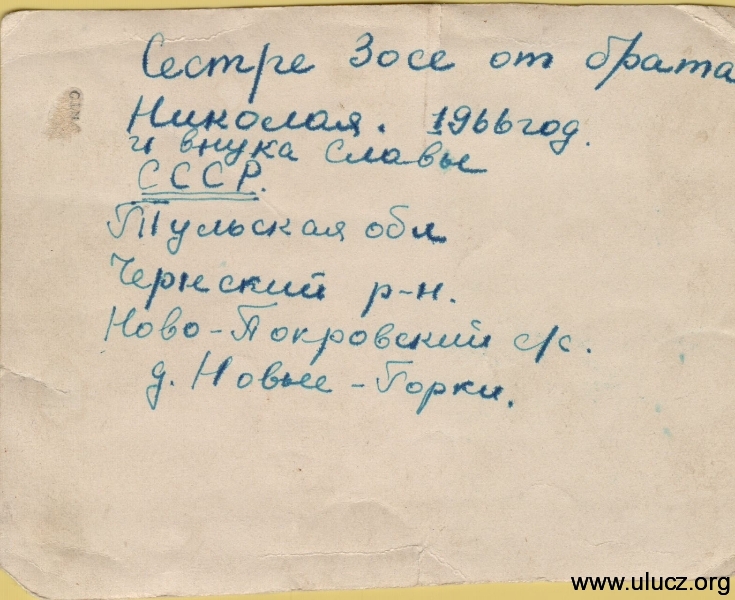 Сестре Зосе от брата
Николая. 1966 год.
и внука Славы
СССР.
Тульская обл
Чернский р-н.
Ново-Покровский с/с.
д. Новые-Горки.
www.ulucz.org